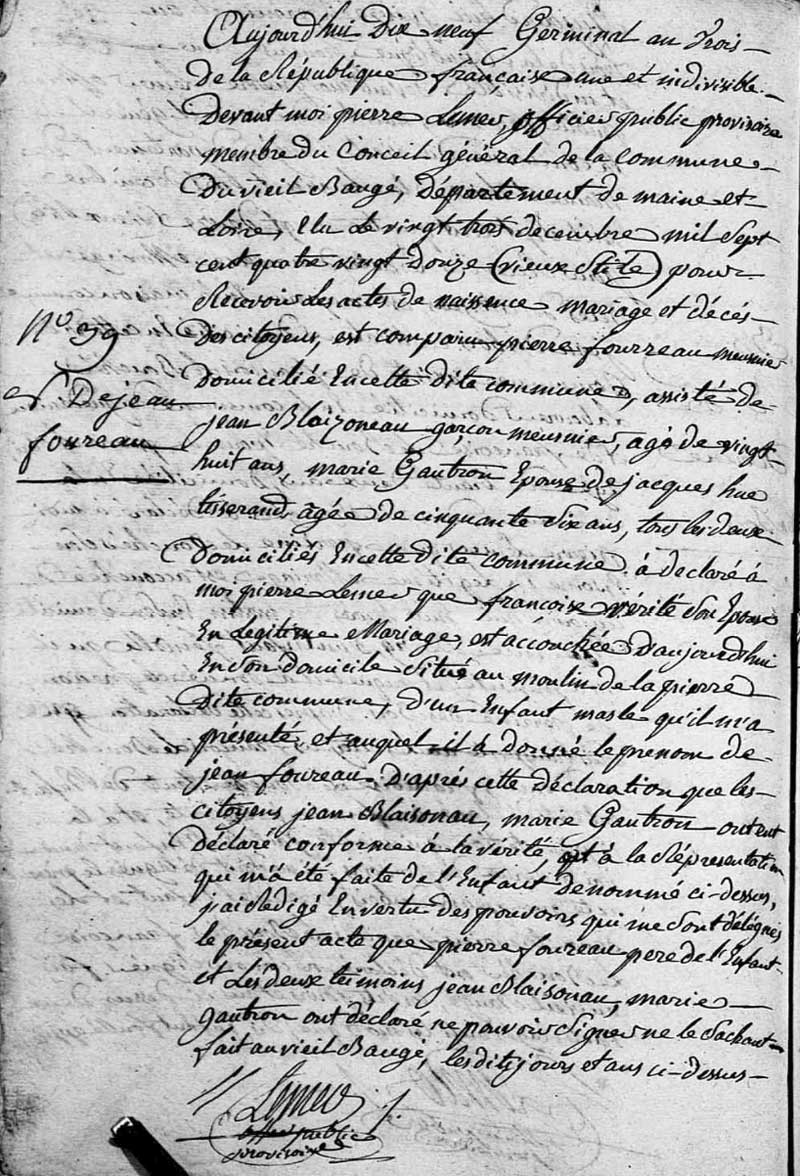 Aujourd'hui Dix neuf Germinal an Trois
de la République française une et indivisible.
Devant moi pierre Lemer, officier public provisoire
membre du Conceil général de la Commune
Du vieil Baugé, Département de maine et
Loire, Elu Le vingt trois decembre mil Sept
cent quatre vingt Douze (vieux Stile) pour
Recevoir Les actes de naissence mariage et décés
Des citoyens, est comparu pierre fourreau meusnier
N.º 39
Domicilié En cette dite commune, assisté de
N De jean
jean Blaizoneau garçon meusnier, agé de vingt
foureau
huit ans, marie Gautron Epouse de jacques hue
tisserand, agée de cinquante Six ans, tous les deux
Domiciliés En cette dite commune. à declaré à
moi pierre Lemer que françoise vérité Son Epouse
En Legitime Mariage, est accouchée D'aujourd'hui
En son Domicile Situé au moulin de la pierre
Dite commune, d'un Enfant masle qu'il m'a
présenté, et auquel il à donné le prenom de
jean foureau. D'aprés cette déclaration que les
citoyens jean Blaisonau, marie Gautron ont
Déclaré conforme à la vérité, et à la Réprésentation
qui m'a été faite de l'Enfant denommé ci-dessus,
j'ai Rédigé En vertu des pouvoirs qui me Sont délégués
le présent acte que pierre foureau pere de l'Enfant
et Les deux témoins jean Blaisonau, marie
gautron ont déclaré ne pouvoir Signer ne le Sachant
fait au vieil Baugé, les dits jours et ans ci-dessus
Lemer
officier public
provisoire